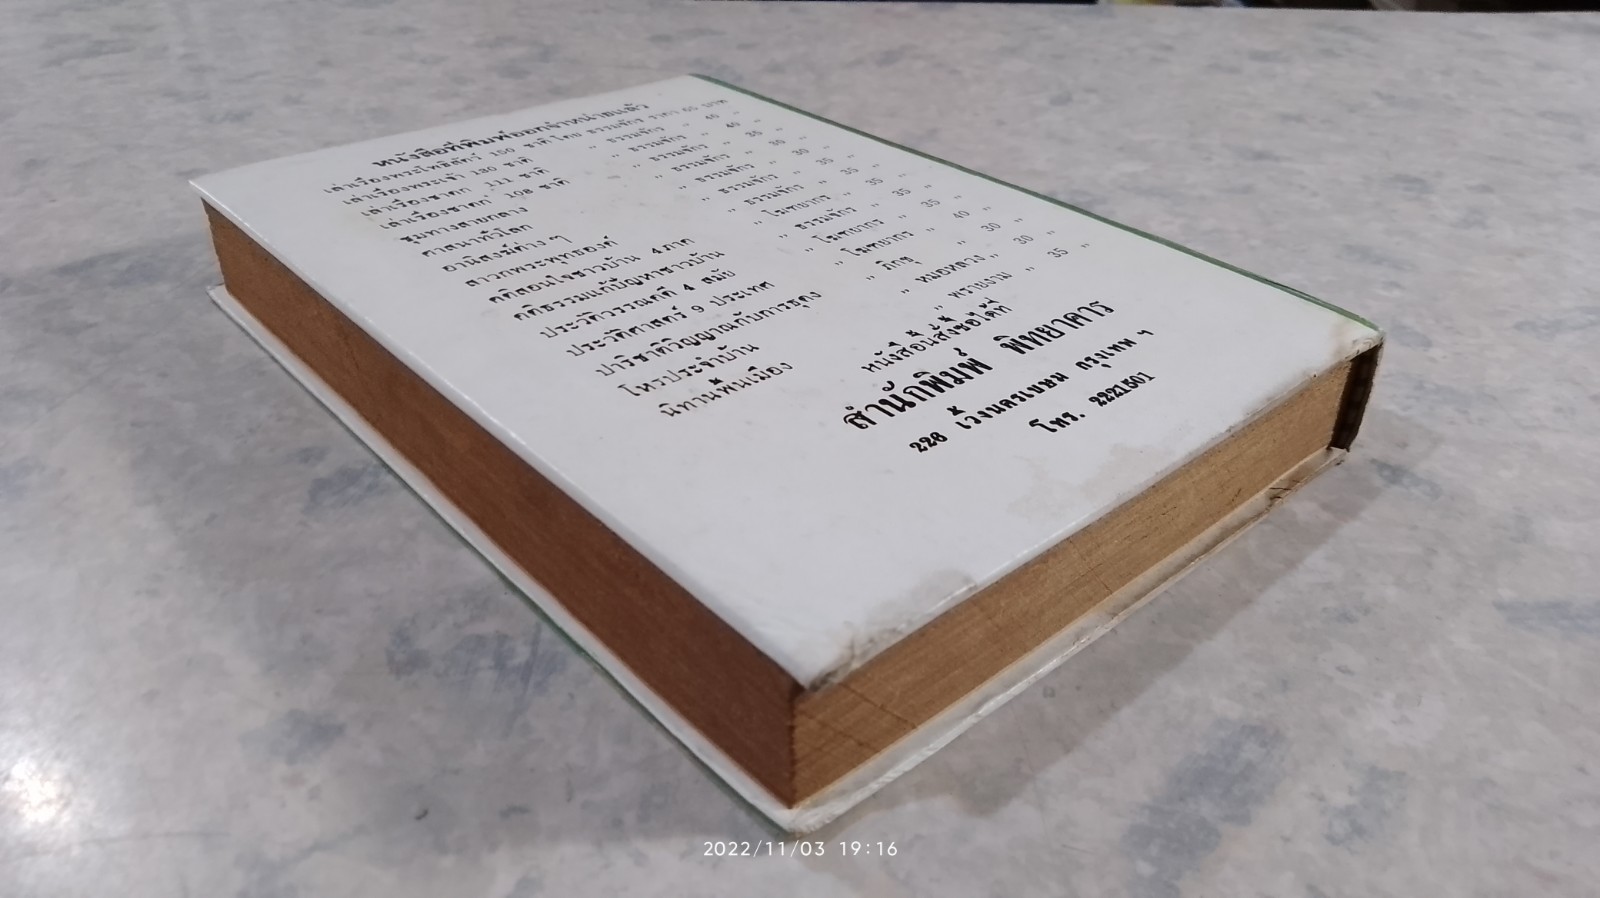 หนังสือที่พิมพ์ออกจำหน่ายแล้ว
เล่าเรื่องพระโพธิสัตว์ 150 ชาติ โดย ธรรมจักร ราคา 65 บาท
เล่าเรื่องพระเจ้า 130 ชาติ " ธรรมจักร " 40 "
เล่าเรื่องชาดก 111 ชาติ " ธรรมจักร " 40 "
เล่าเรื่องชาดก 108 ชาติ " ธรรมจักร " 35 "
ชุมทางสายกลาง " ธรรมจักร " 30 "
ศาสนาทั่วโลก " ธรรมจักร " 30 "
อานิสงษ์ต่าง ๆ " ธรรมจักร " 35 "
สาวกพระพุทธองค์ " โรหพากร " 35 "
คติสอนใจชาวบ้าน 4 ภาค " ธรรมจักร " 35 "
คติธรรมแก้ปัญหาชาวบ้าน " " 35 "
ประวัติวรรณคดี 4 สมัย " " 40 "
ประวัติศาสตร์ 9 ประเทศ " ภิกขุ " 30 "
ปาริชาติวิญญาณกับการธุดง " หมอหลวง " 30 "
โหรประจำบ้าน " พรายงาม " 35 "
นิทานพื้นเมือง
หนังสือนี้สั่งซื้อได้ที่
สำนักพิมพ์ พิทยาคาร
226 เวิ้งนครเขษม กรุงเทพ ฯ
โทร. 2221501
2022/11/03 19:16